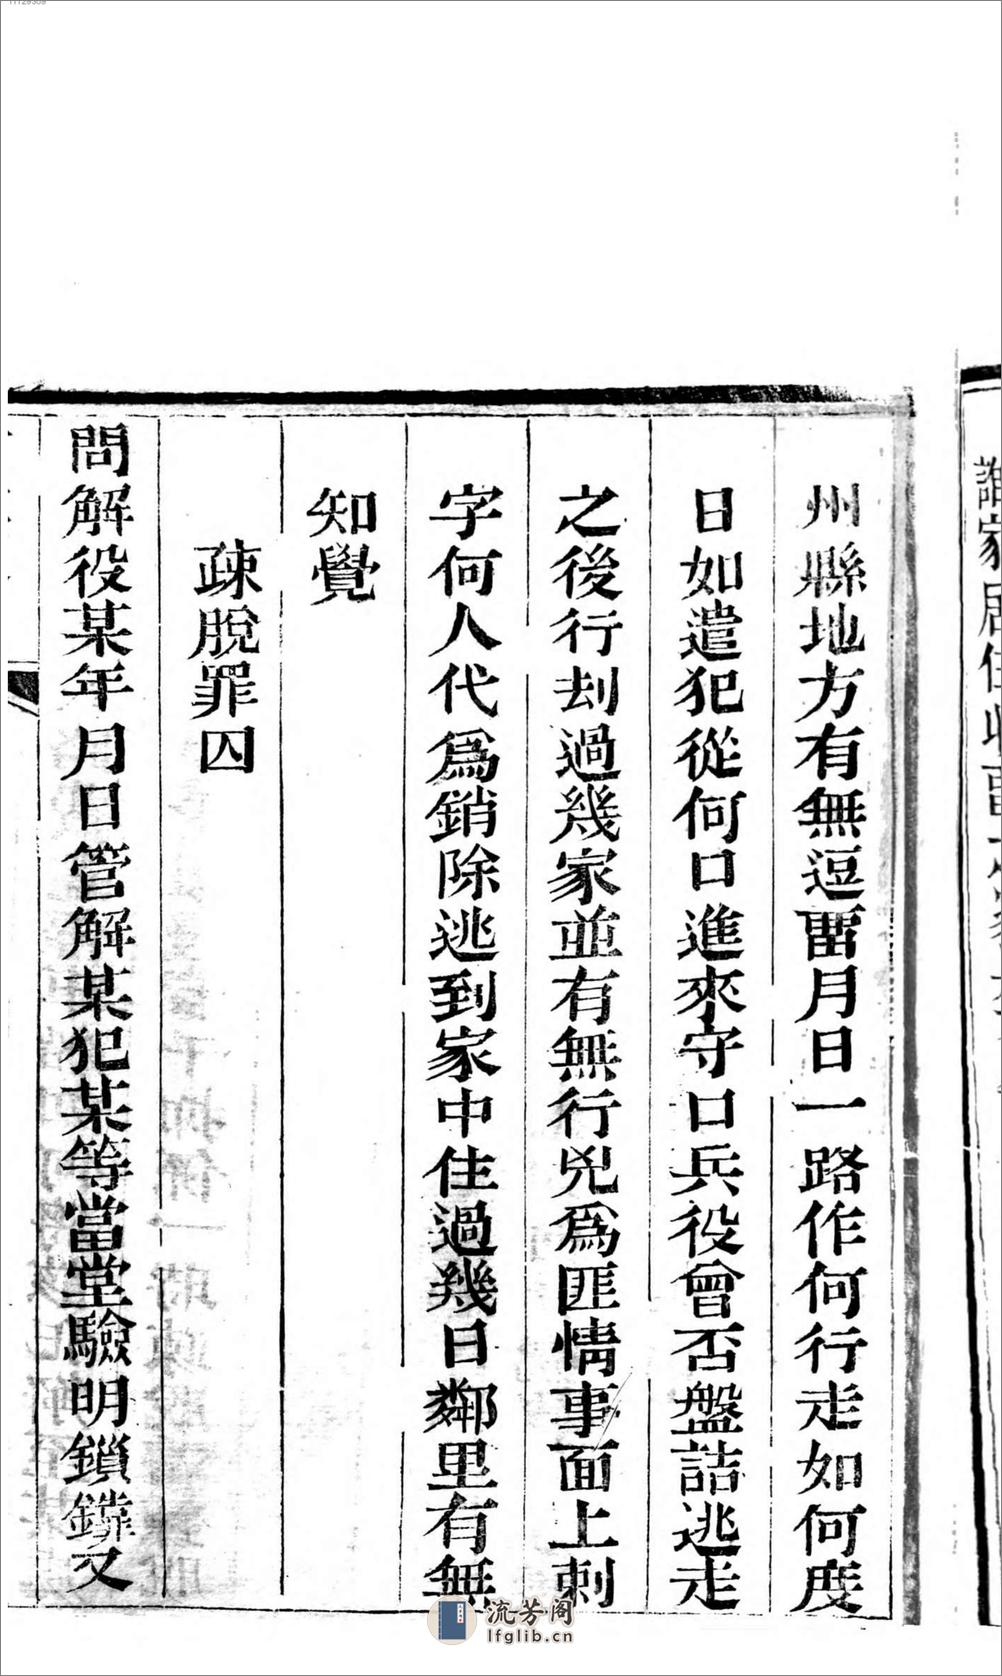 州縣地方有無逗畱月日一路作何行走如何度
日如遣犯從何口進來守口兵役曾否盤詰逃走
之後行刦過幾家並有無行兇爲匪情事面上刺
字何人代爲銷除逃到家中住過幾日鄰里有無
知覺
疎脫罪囚
問解役某年月日管解某犯某等當堂驗明鎖鐐又
流芳阁
lfglib.cn